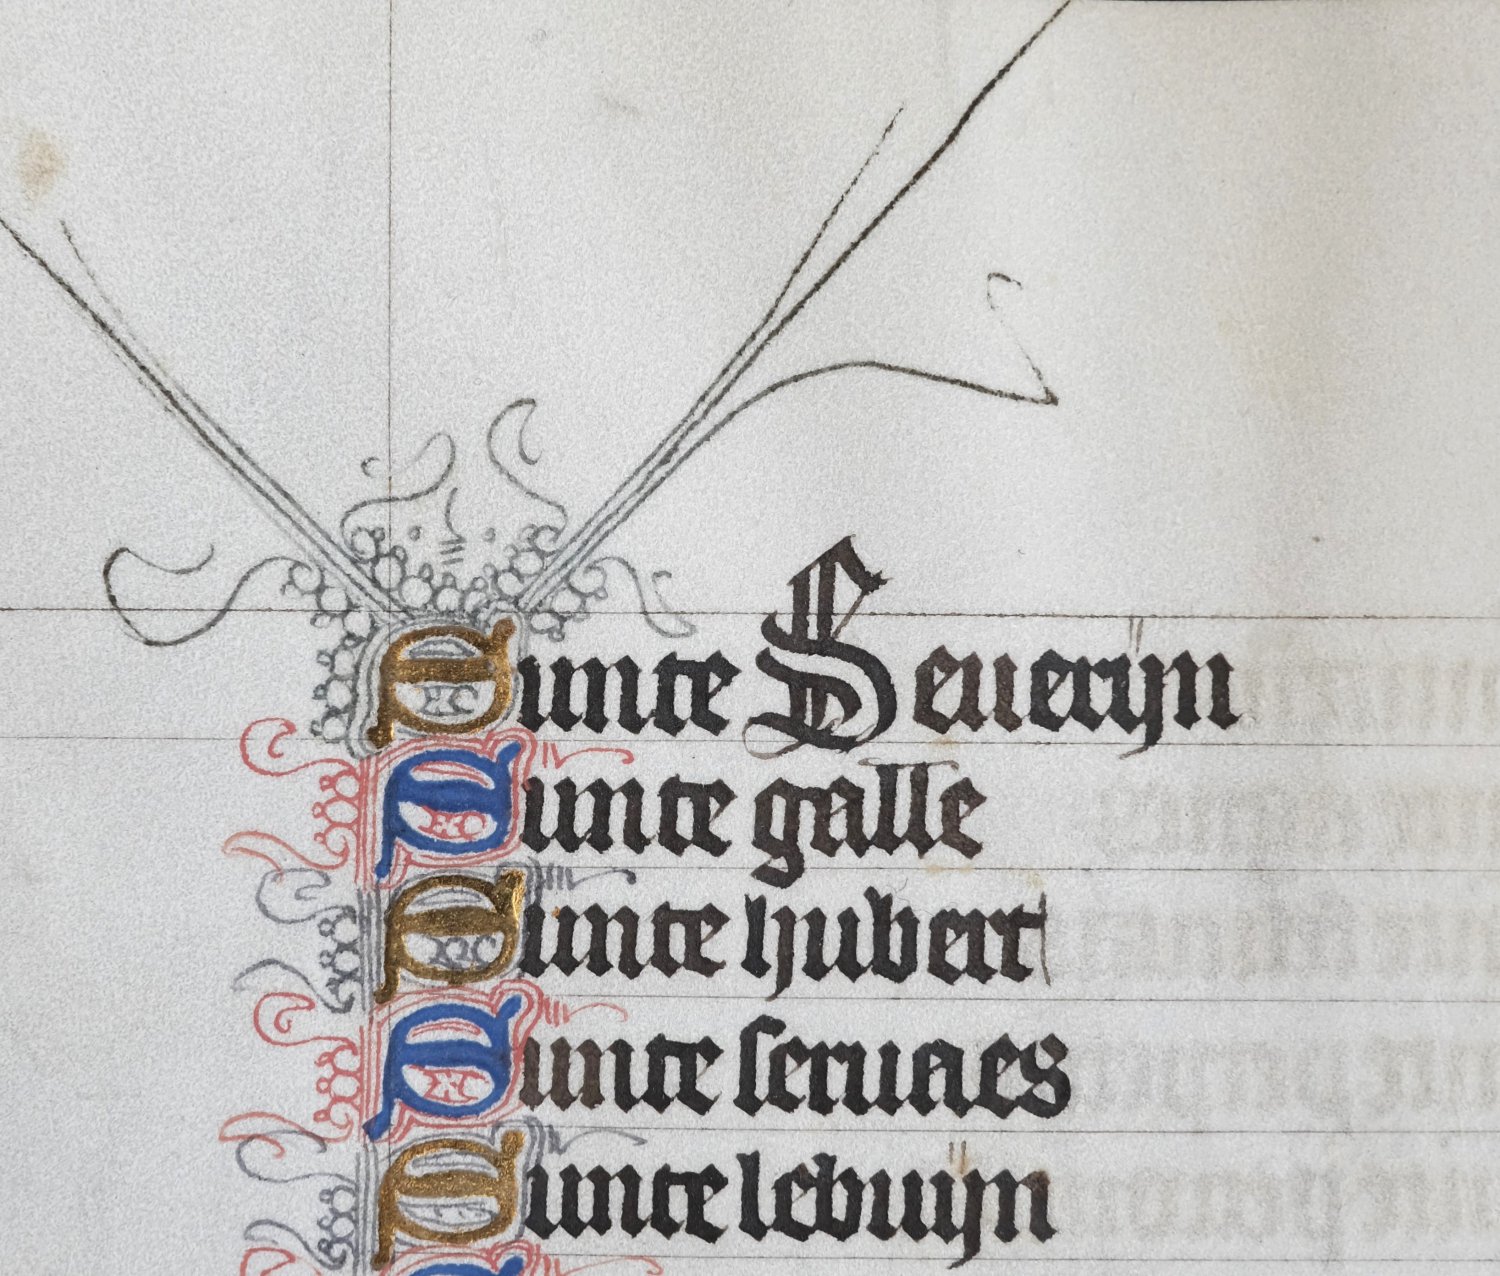 Sunte Seuerijn
Sunte galle
Sunte hubert
Sunte ſeruaes
Sunte lebuijn